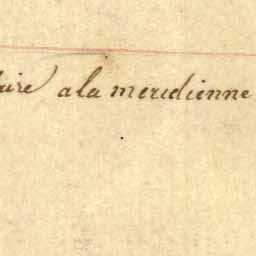 aire a la meridienne